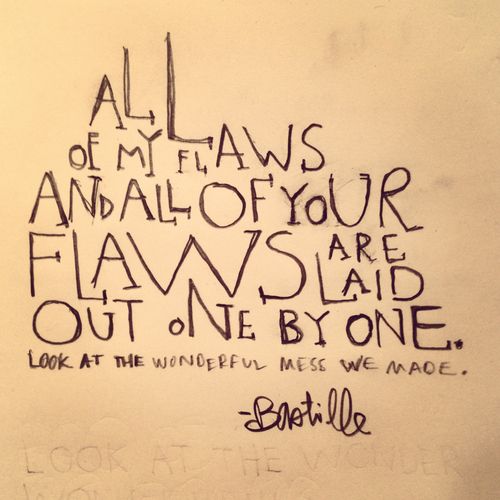 ALL
OF MY FLAWS
AND ALL OF YOUR
FLAWS ARE
LAID
OUT ONE BY ONE.
LOOK AT THE WONDERFUL MESS WE MADE.
-Bastille
LOOK AT THE WONDER